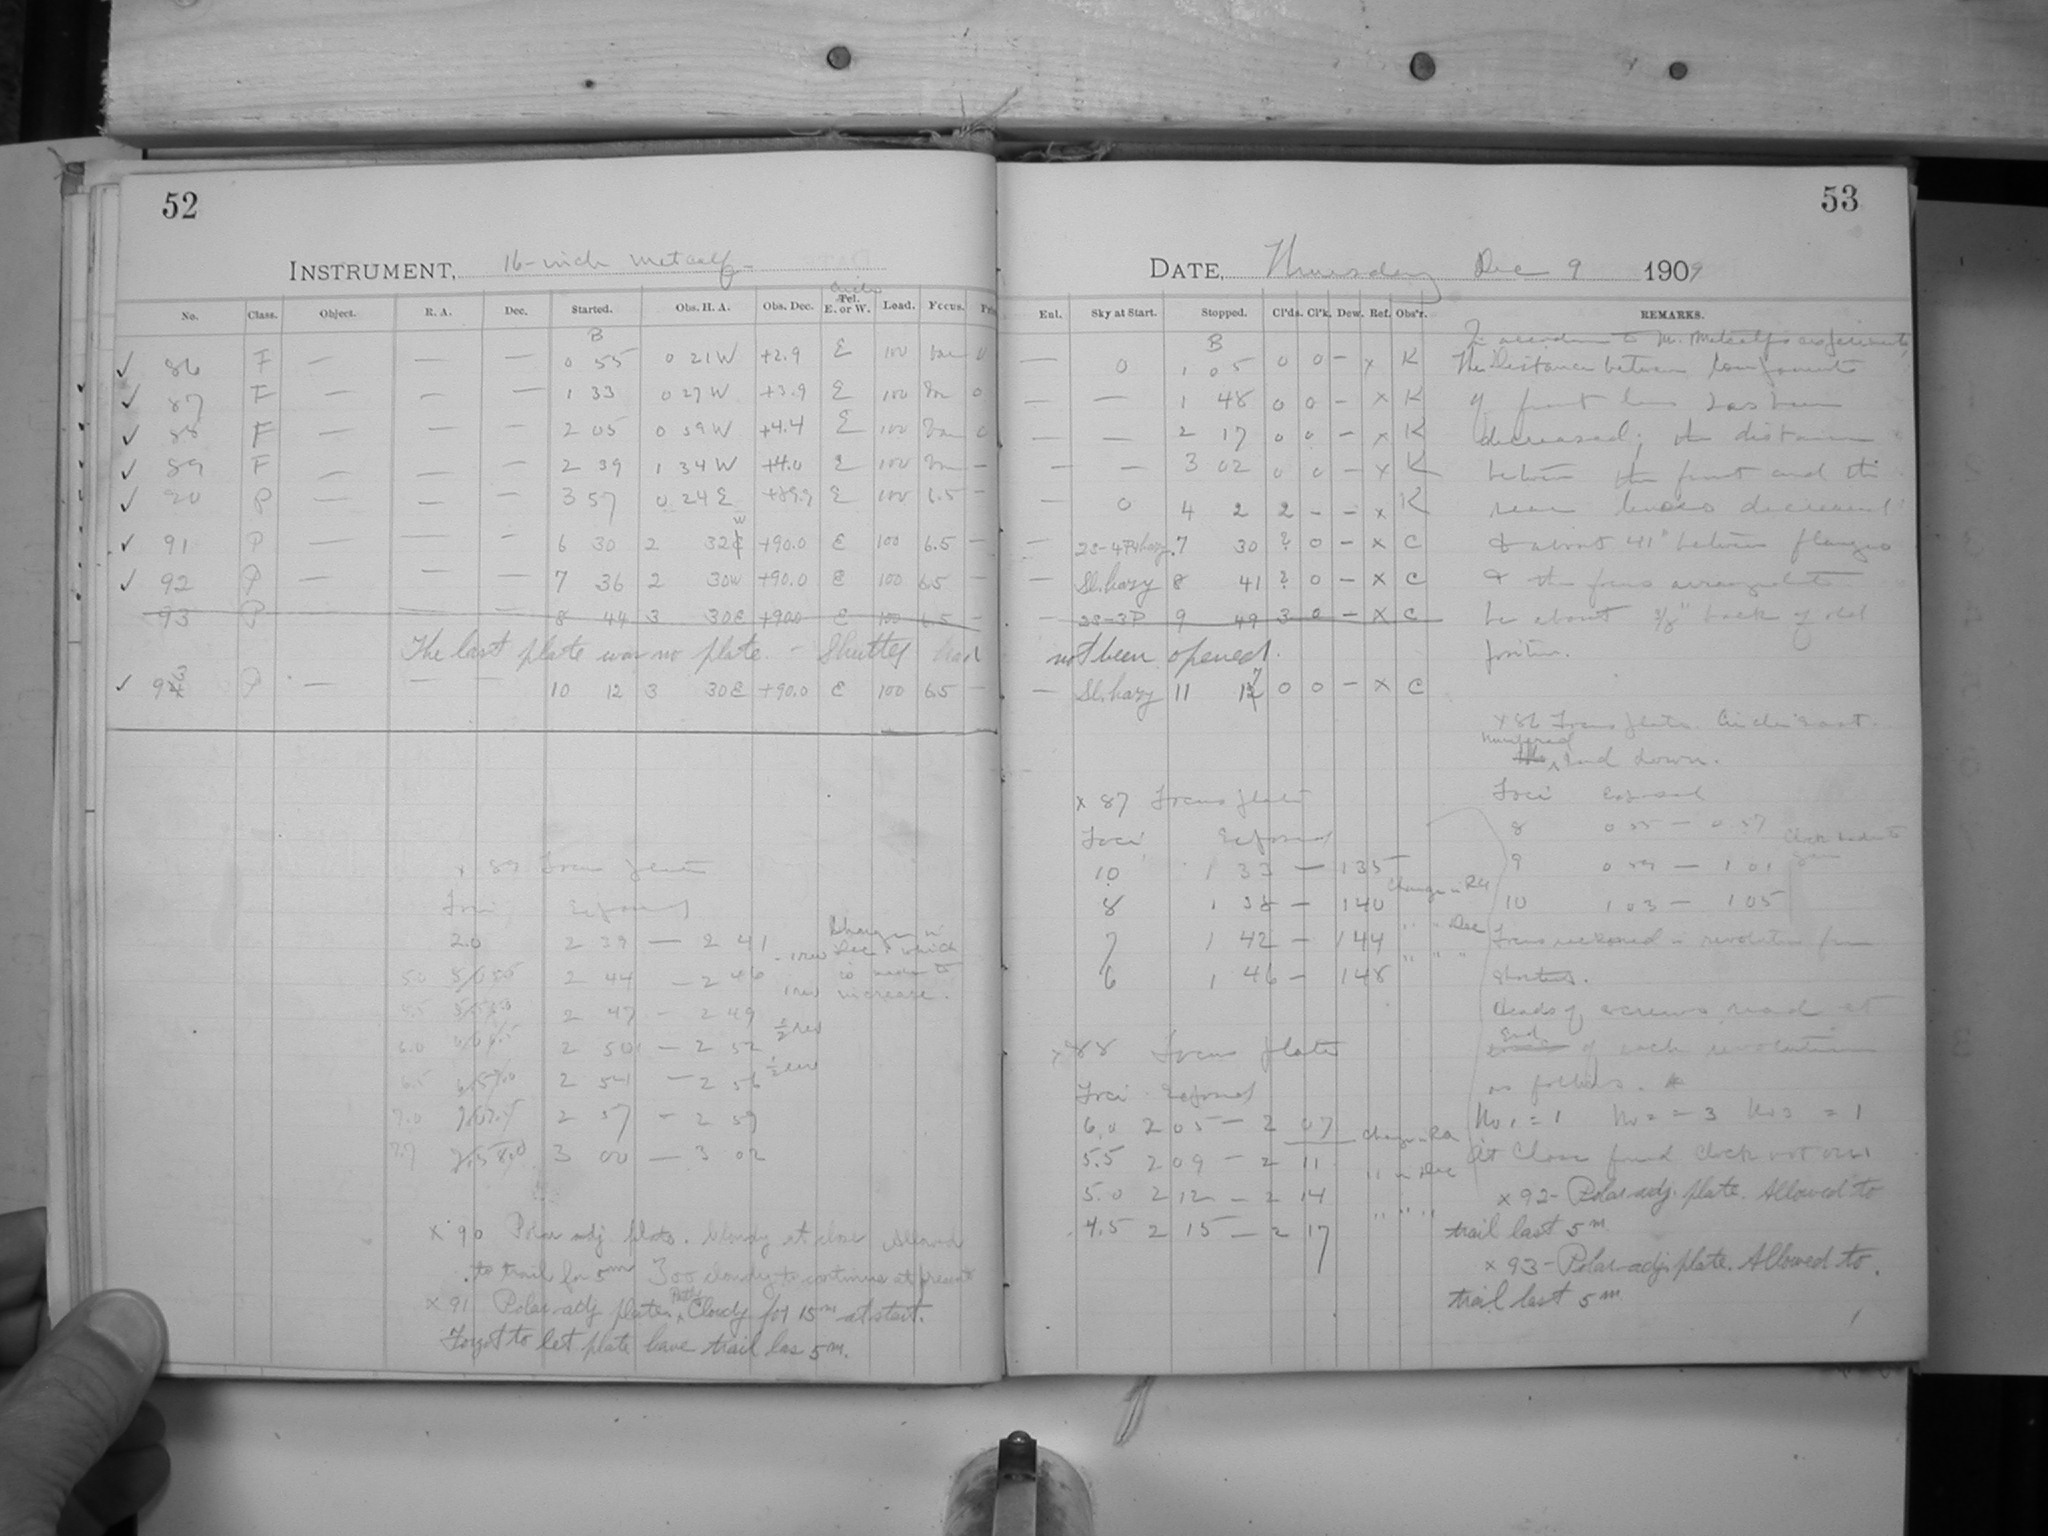 52
INSTRUMENT, 16-inch Metcalf
No. Class. Object. R. A. Dec. Started. Obs. H. A. Obs. Dec. Tel. E. or W. Load. Focus.
B
86 F — — — 0 55 0 21 W +2.9 E 100 0
87 F — — — 1 33 0 27 W +3.9 E 100 0
88 F — — — 2 05 0 59 W +4.4 E 100 0
89 F — — — 2 39 1 34 W +4.0 E 100 —
90 P — — — 3 57 0 24 E E 100 6.5 —
91 P — — — 6 30 2 32 W +90.0 E 100 6.5 —
92 P — — — 7 36 2 30 W +90.0 E 100 6.5 —
93 P — — — 8 44 3 30 E +90.0 E 100 6.5 —
The last plate was no plate. - Shutter had
93 P — — — 10 12 3 30 E +90.0 E 100 6.5 —
x 89 Focus plate
Foci Exposed
2.0 2 39 — 2 41
5.0 2 44 — 2 46
5.5 2 47 - 2 49
6.0 2 50 — 2 52
6.5 2 54 — 2 56
7.0 2 57 - 2 59
3 00 — 3 02
Change in
Dec. which
is made to
increase.
1 rev
1/2 rev
1/2 rev
x 90 Polar adj. plate. Cloudy at close Allowed
to trail for 5m cloudy to continue at present
x 91 Polar-adj plate. Partly Cloudy for 15m at start.
Forgot to let plate have trail las 5m.
53
DATE, Thursday Dec 9 1909
Enl. Sky at Start. Stopped. Cl'ds. Cl'k. Dew. Ref. Obs'r. REMARKS.
B
— 0 1 05 0 0 — x K
— — 1 48 0 0 — x K
— — 2 17 0 0 — x K
— — 3 02 0 0 — x K
— 0 4 2 2 - — x K
— 7 30 ? 0 — x C
— Sl. hazy 8 41 ? 0 — x C
— 2S-3P 9 49 3 0 — x C
not been opened.
— Sl. hazy 11 17 0 0 — x C
In accordance to Mr. Metcalf's
The Distance between components
of front lens has been
decreased; the distance
between the front and the
rear lenses decreased
to about 41" between flanges
& the focus
be about 3/8" back of old
position.
x 86 Focus plate. Circle east.
Numbered end down.
Foci Exposed
8 0 55 — 0 57
9 0 59 — 1 01
10 1 03 — 1 05
Focus reckoned in revolutions from
shortest.
Heads of screws read at
end of each revolution
as follows.
No 1 = 1 No 2 = 3 No 3 = 1
At close found clock not
x 87 Focus plate
Foci Exposed
10 1 33 — 1 35
Change in RA
8 1 38 — 1 40
" " Dec
7 1 42 — 1 44
" " "
6 1 46 — 1 48
x 88 Focus plate
Foci Exposed
6.0 2 05 — 2 07
Change in RA
5.5 2 09 — 2 11
" in Dec
5.0 2 12 — 2 14
" " "
4.5 2 15 — 2 17
x 92 - Polar-adj. plate. Allowed to
trail last 5m
x 93 - Polar-adj. plate. Allowed to
trail last 5m